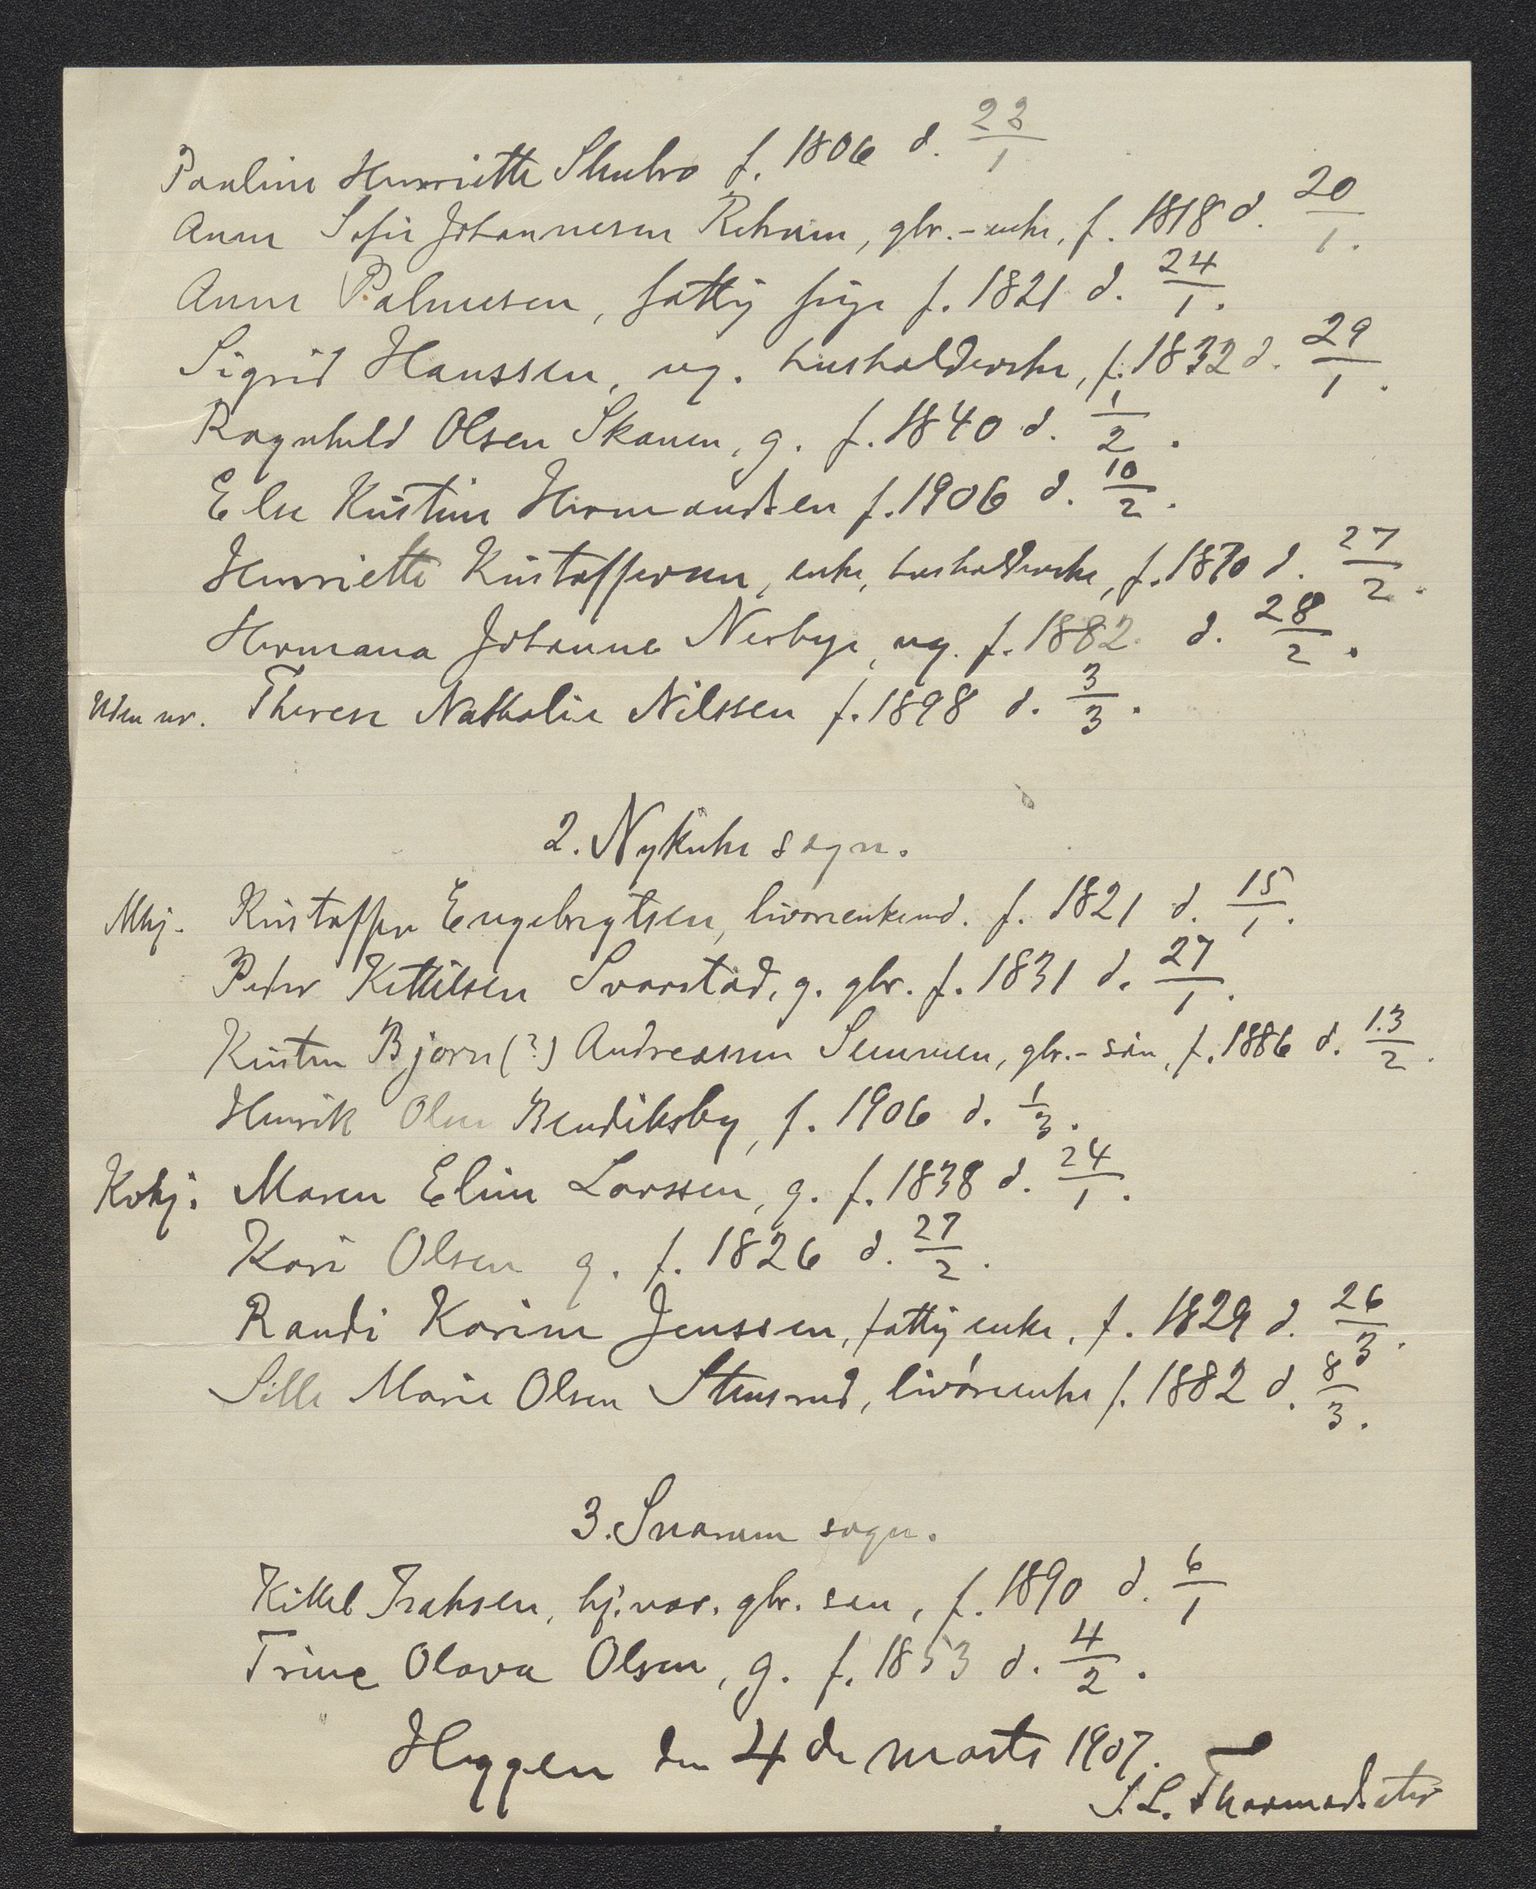 Pauline Henriette Skulvo f. 1806 d. 23/1
Anne Sofie Johannesen Rehum, gbr.-enke, f. 1818 d. 20/1.
Anne Palmesen, fattig pige f. 1821 d. 24/1.
Sigrid Hanssen, ug. husholderske, f. 1832 d. 29/1.
Ragnhild Olsen Skauen, g. f. 1840 d. 1/2.
Else Kristine Hermandsen f. 1906 d. 10/2.
Henriette Kristoffersen, enke, husholderske, f. 1870 d. 27/2.
Hermana Johanne Nerbye, ug. f. 1882 d. 28/2.
Uden nr. Therese Nathalie Nilssen f. 1898 d. 3/3.
2. Nykirke sogn.
Mkj. Kristoffer Engebrigtsen, livøreenkemd. f. 1821 d. 15/1.
Peder Kettilsen Svarstad, g. gbr. f. 1831 d. 27/1.
Kristen Bjørn (?) Andreassen Semmen, gbr.-søn, f. 1886 d. 13/2.
Henrik Olsen Bendiksby, f. 1906 d. 1/3.
Kvkj. Maren Eline Larssen, g. f. 1838 d. 24/1.
Kari Olsen g. f. 1826 d. 27/2.
Randi Karine Jenssen, fattig enke, f. 1829 d. 26/3.
Sille Marie Olsen Stensrud, livøreenke f. 1882 d. 8/3.
3. Snarum sogn.
Kittel Isaksen, hj.vær. gbr. søn, f. 1890 d. 6/1
Trine Olava Olsen, g. f. 1853 d. 4/2.
Heggen den 4de marts 1907.
S. L. Thormodsæter